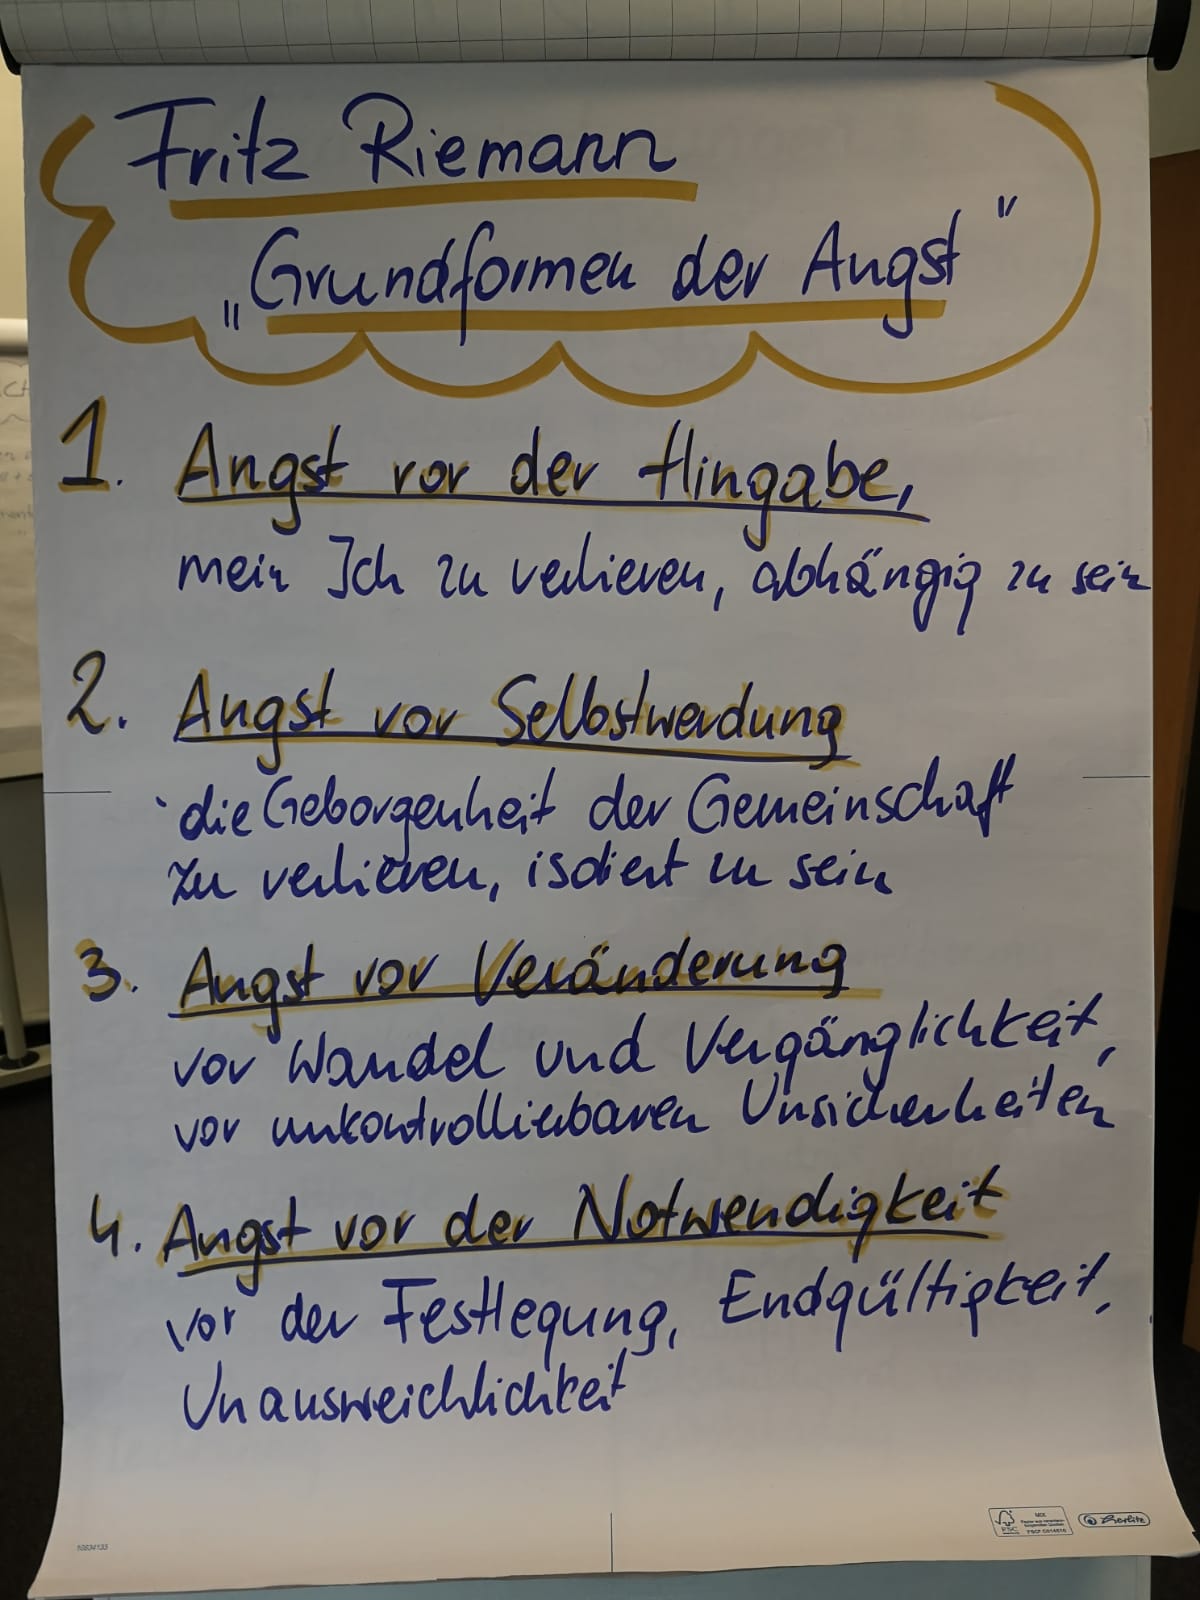 Fritz Riemann
„Grundformen der Angst"
1. Angst vor der Hingabe,
mein Ich zu verlieren, abhängig zu sein
2. Angst vor Selbstwerdung
die Geborgenheit der Gemeinschaft
zu verlieren, isoliert zu sein
3. Angst vor Veränderung
vor Wandel und Vergänglichkeit,
vor unkontrollierbaren Unsicherheiten
4. Angst vor der Notwendigkeit
vor der Festlegung, Endgültigkeit,
Unausweichlichkeit
FSC
MIX
herlitz